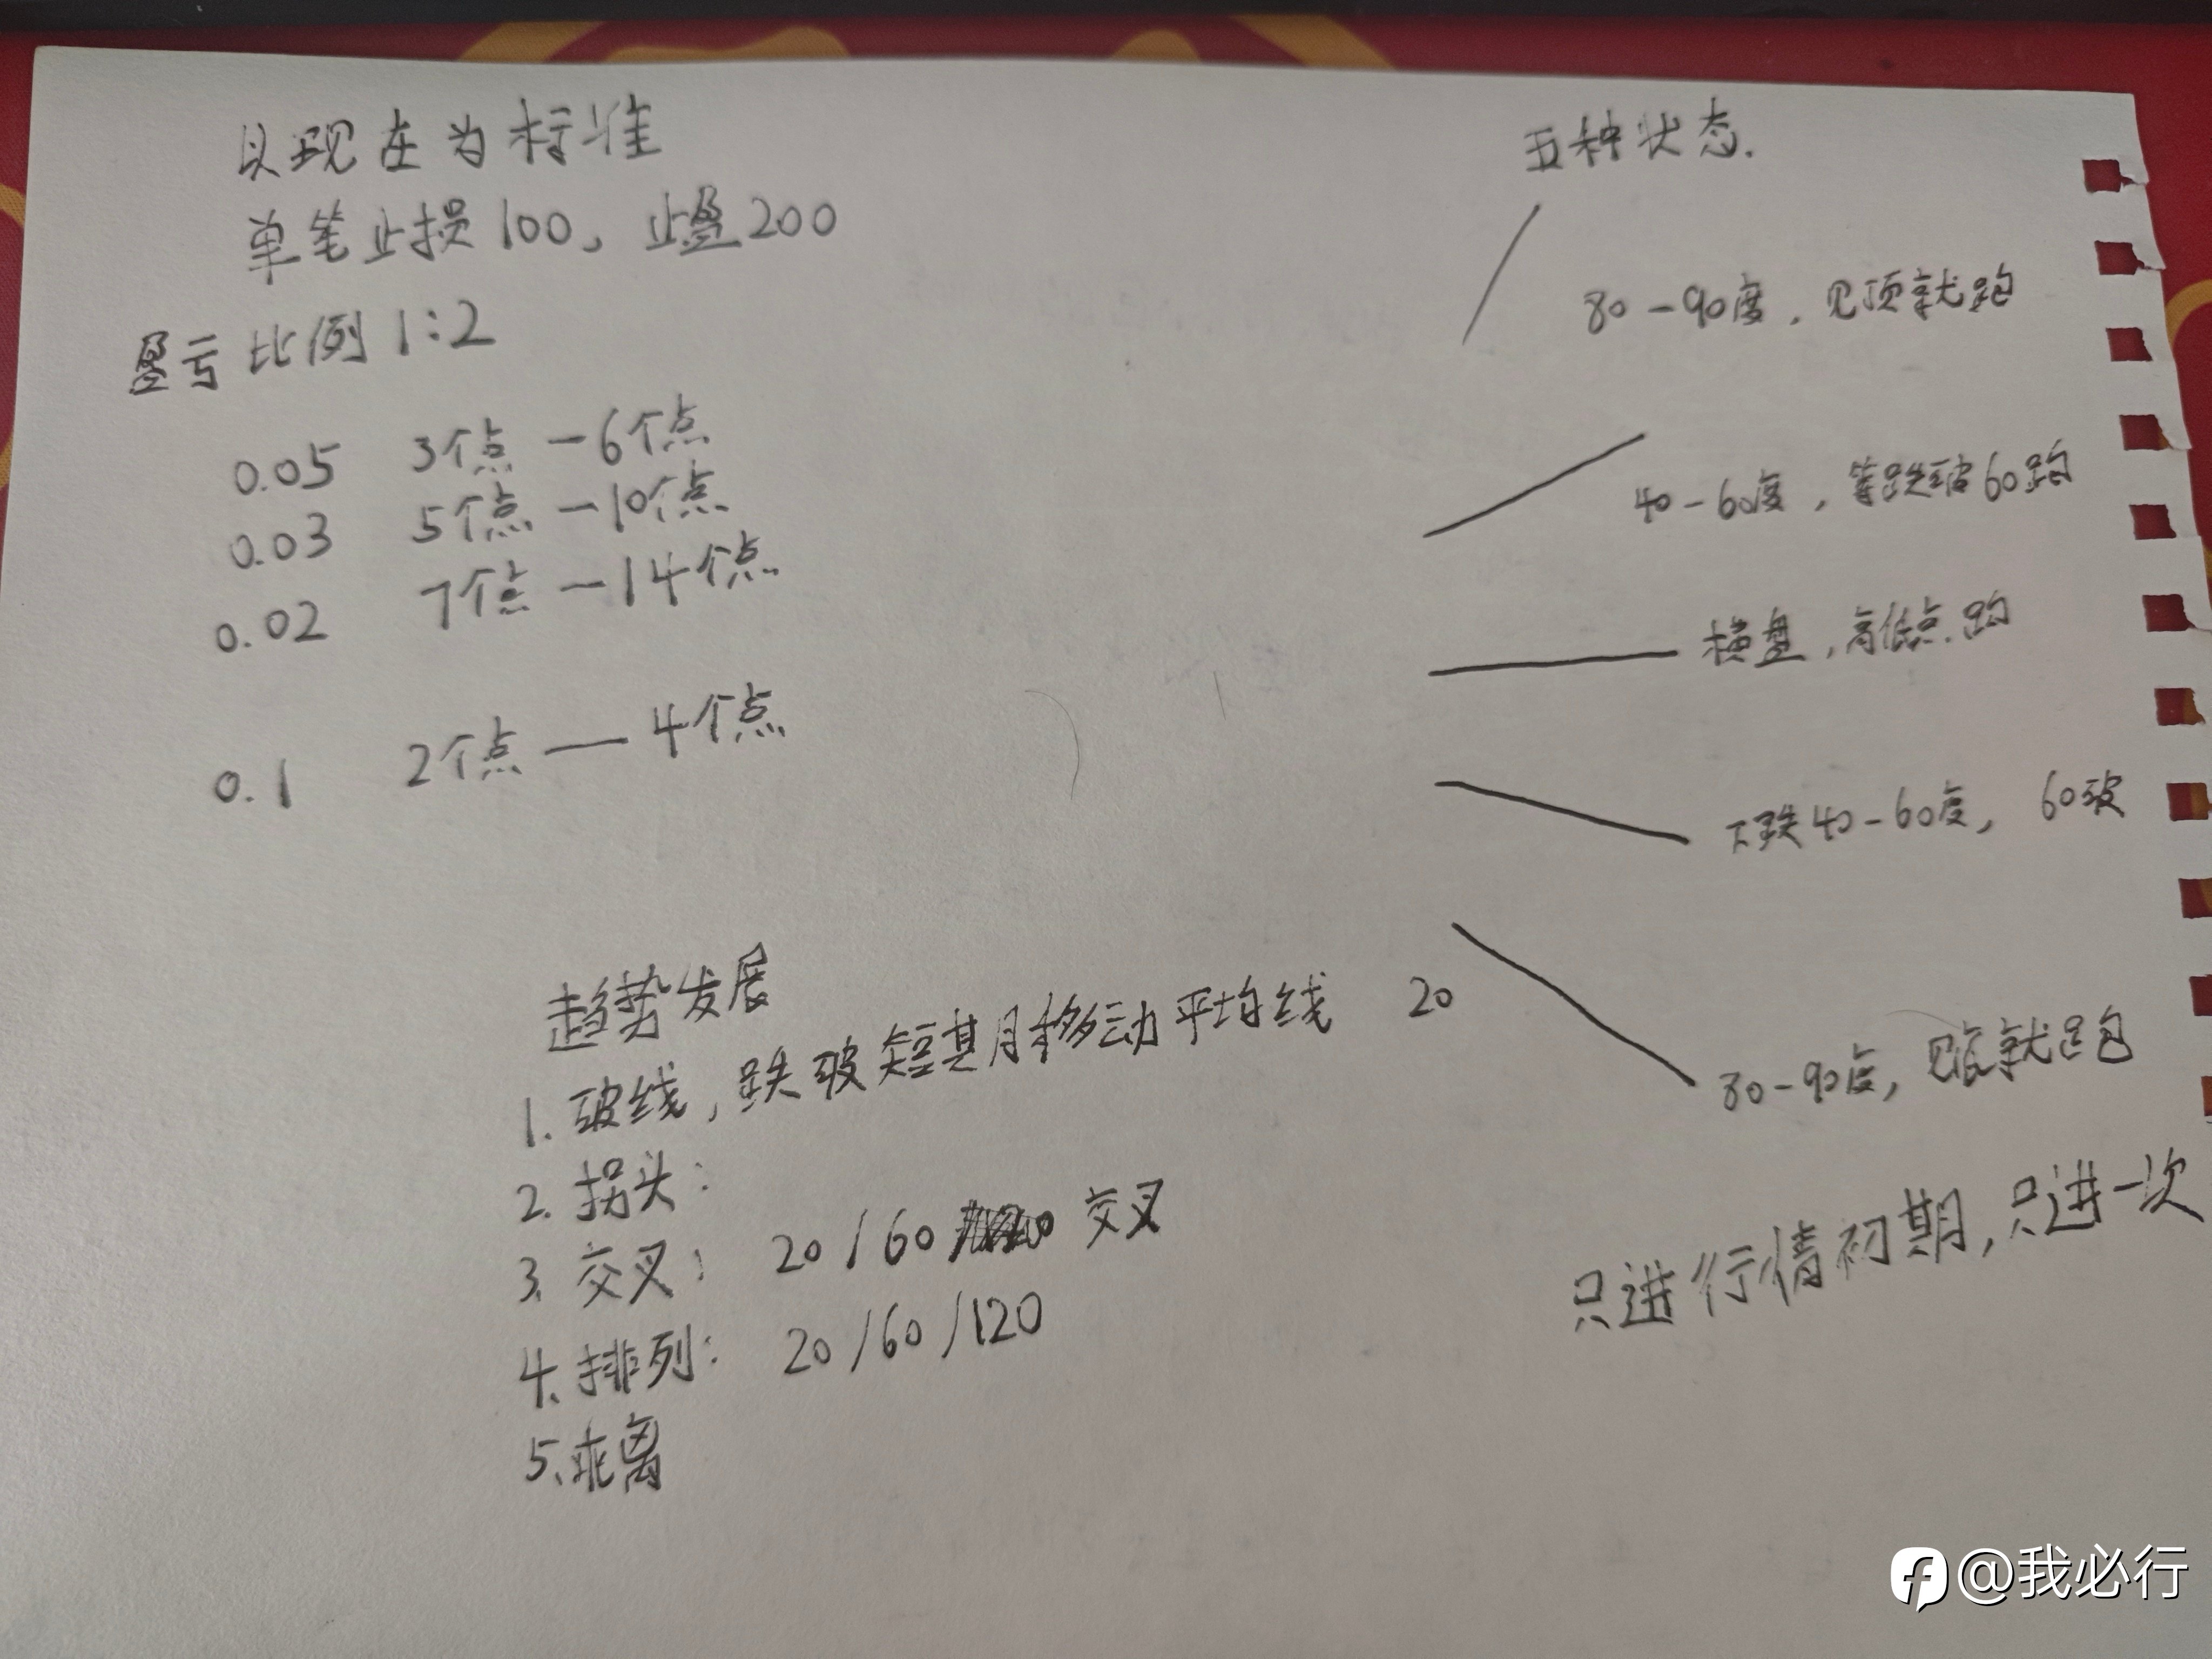 以现在为标准
单笔止损100，止盈200
盈亏比例1:2
0.05 3个点-6个点
0.03 5个点-10个点
0.02 7个点-14个点
0.1 2个点—4个点
五种状态.
80-90度，见顶就跑
40-60度，等跌破60跑
横盘，高低点跑
下跌40-60度，60破
80-90度，见底就跑
只进行情初期，只进一次
趋势发展
1.破线，跌破短期移动平均线 20
2.拐头：
3.交叉：20/60 交叉
4.排列：20/60/120
5.乖离
@我必行